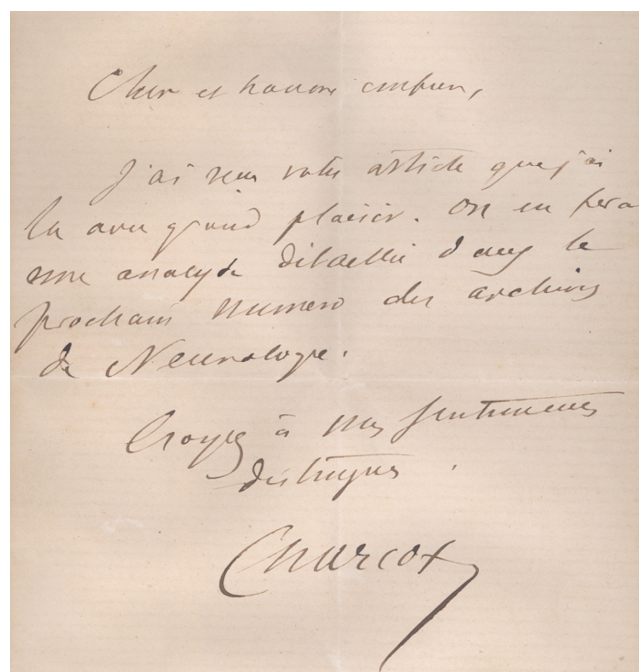 Cher et honoré confrère,
J'ai reçu votre article que j'ai
lu avec grand plaisir. On en fera
une analyse détaillée dans le
prochain numero des archives
de Neurologie.
Croyez à mes sentiments
distingués.
Charcot